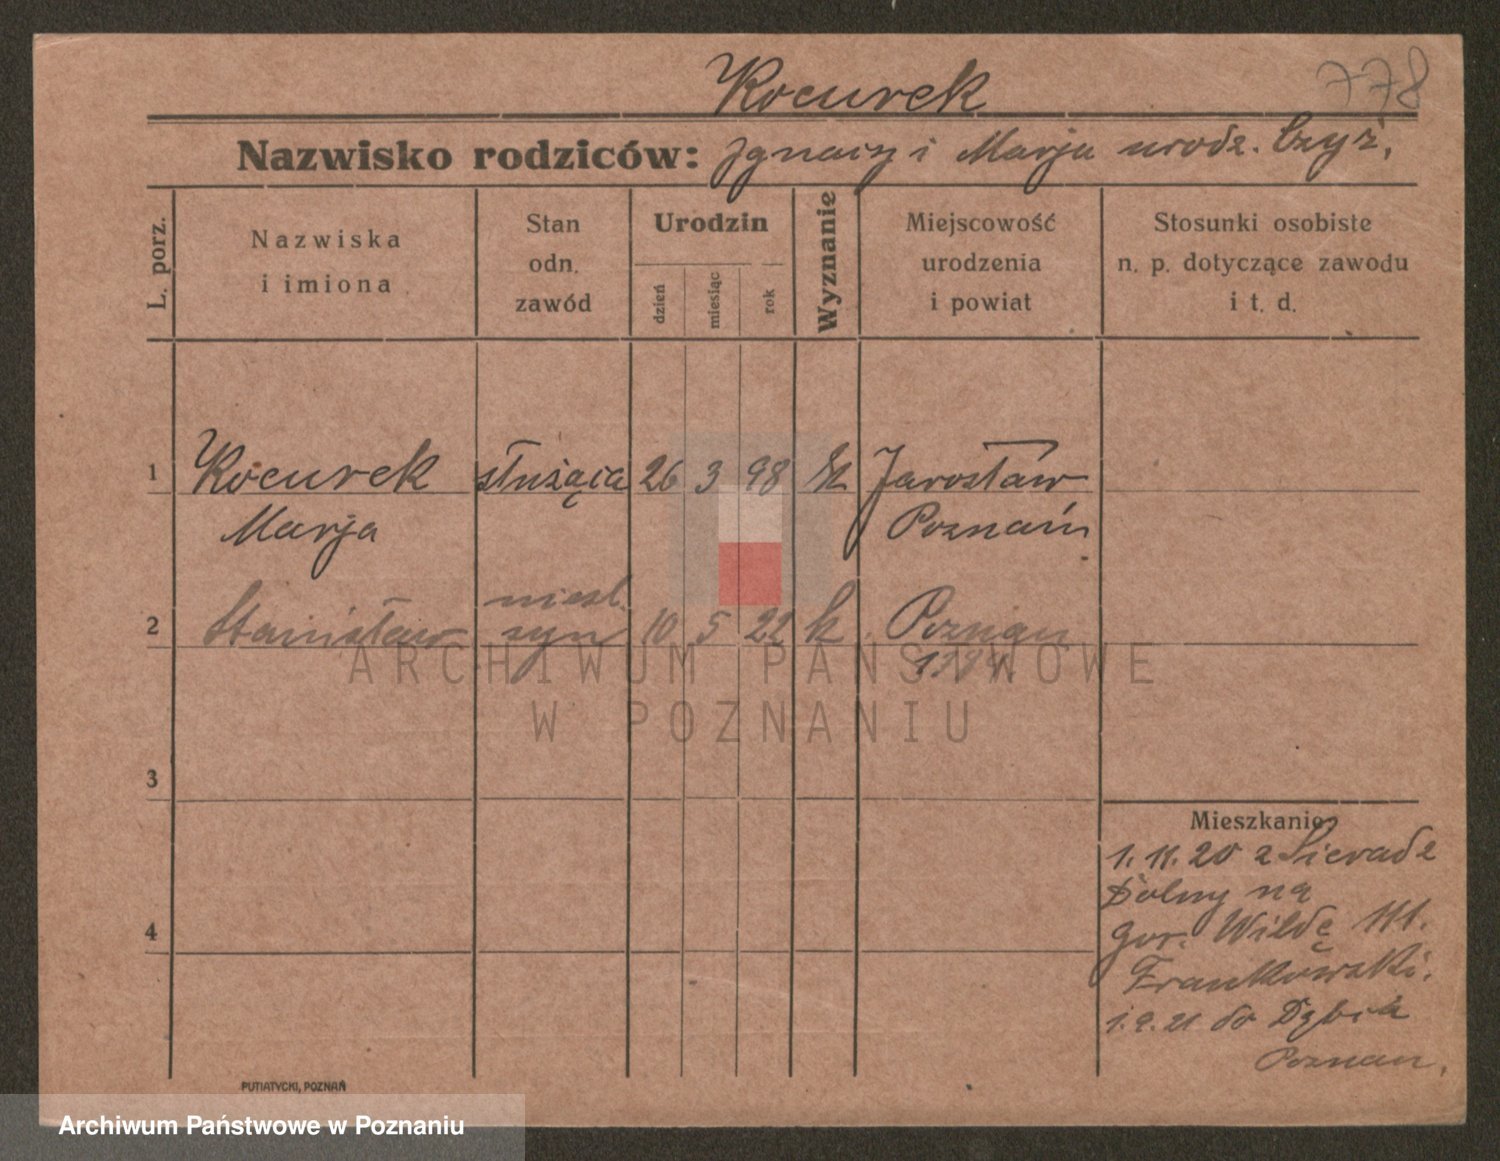 Kocurek
778
Nazwisko rodziców: Ignacy i Marja urodz. Czyż.
L. porz.
Nazwiska
i imiona
Stan
odn.
zawód
Urodzin
dzień
miesiąc
rok
Wyznanie
Miejscowość
urodzenia
i powiat
Stosunki osobiste
n. p. dotyczące zawodu
i t. d.
1 Kocurek służąca 26 3 98 k Jarosław
Marja Poznań
niesl.
2 Stanisław syn 10 5 22 k Poznan
3
4
Mieszkanie
1. 11. 20 z Sieradz
Dolny na
gor. Wildę 111.
Frankowski.
1. 9. 21 do Dębia
Poznan.
PUTIATYCKI, POZNAŃ
ARCHIWUM PAŃSTWOWE
W POZNANIU
Archiwum Państwowe w Poznaniu